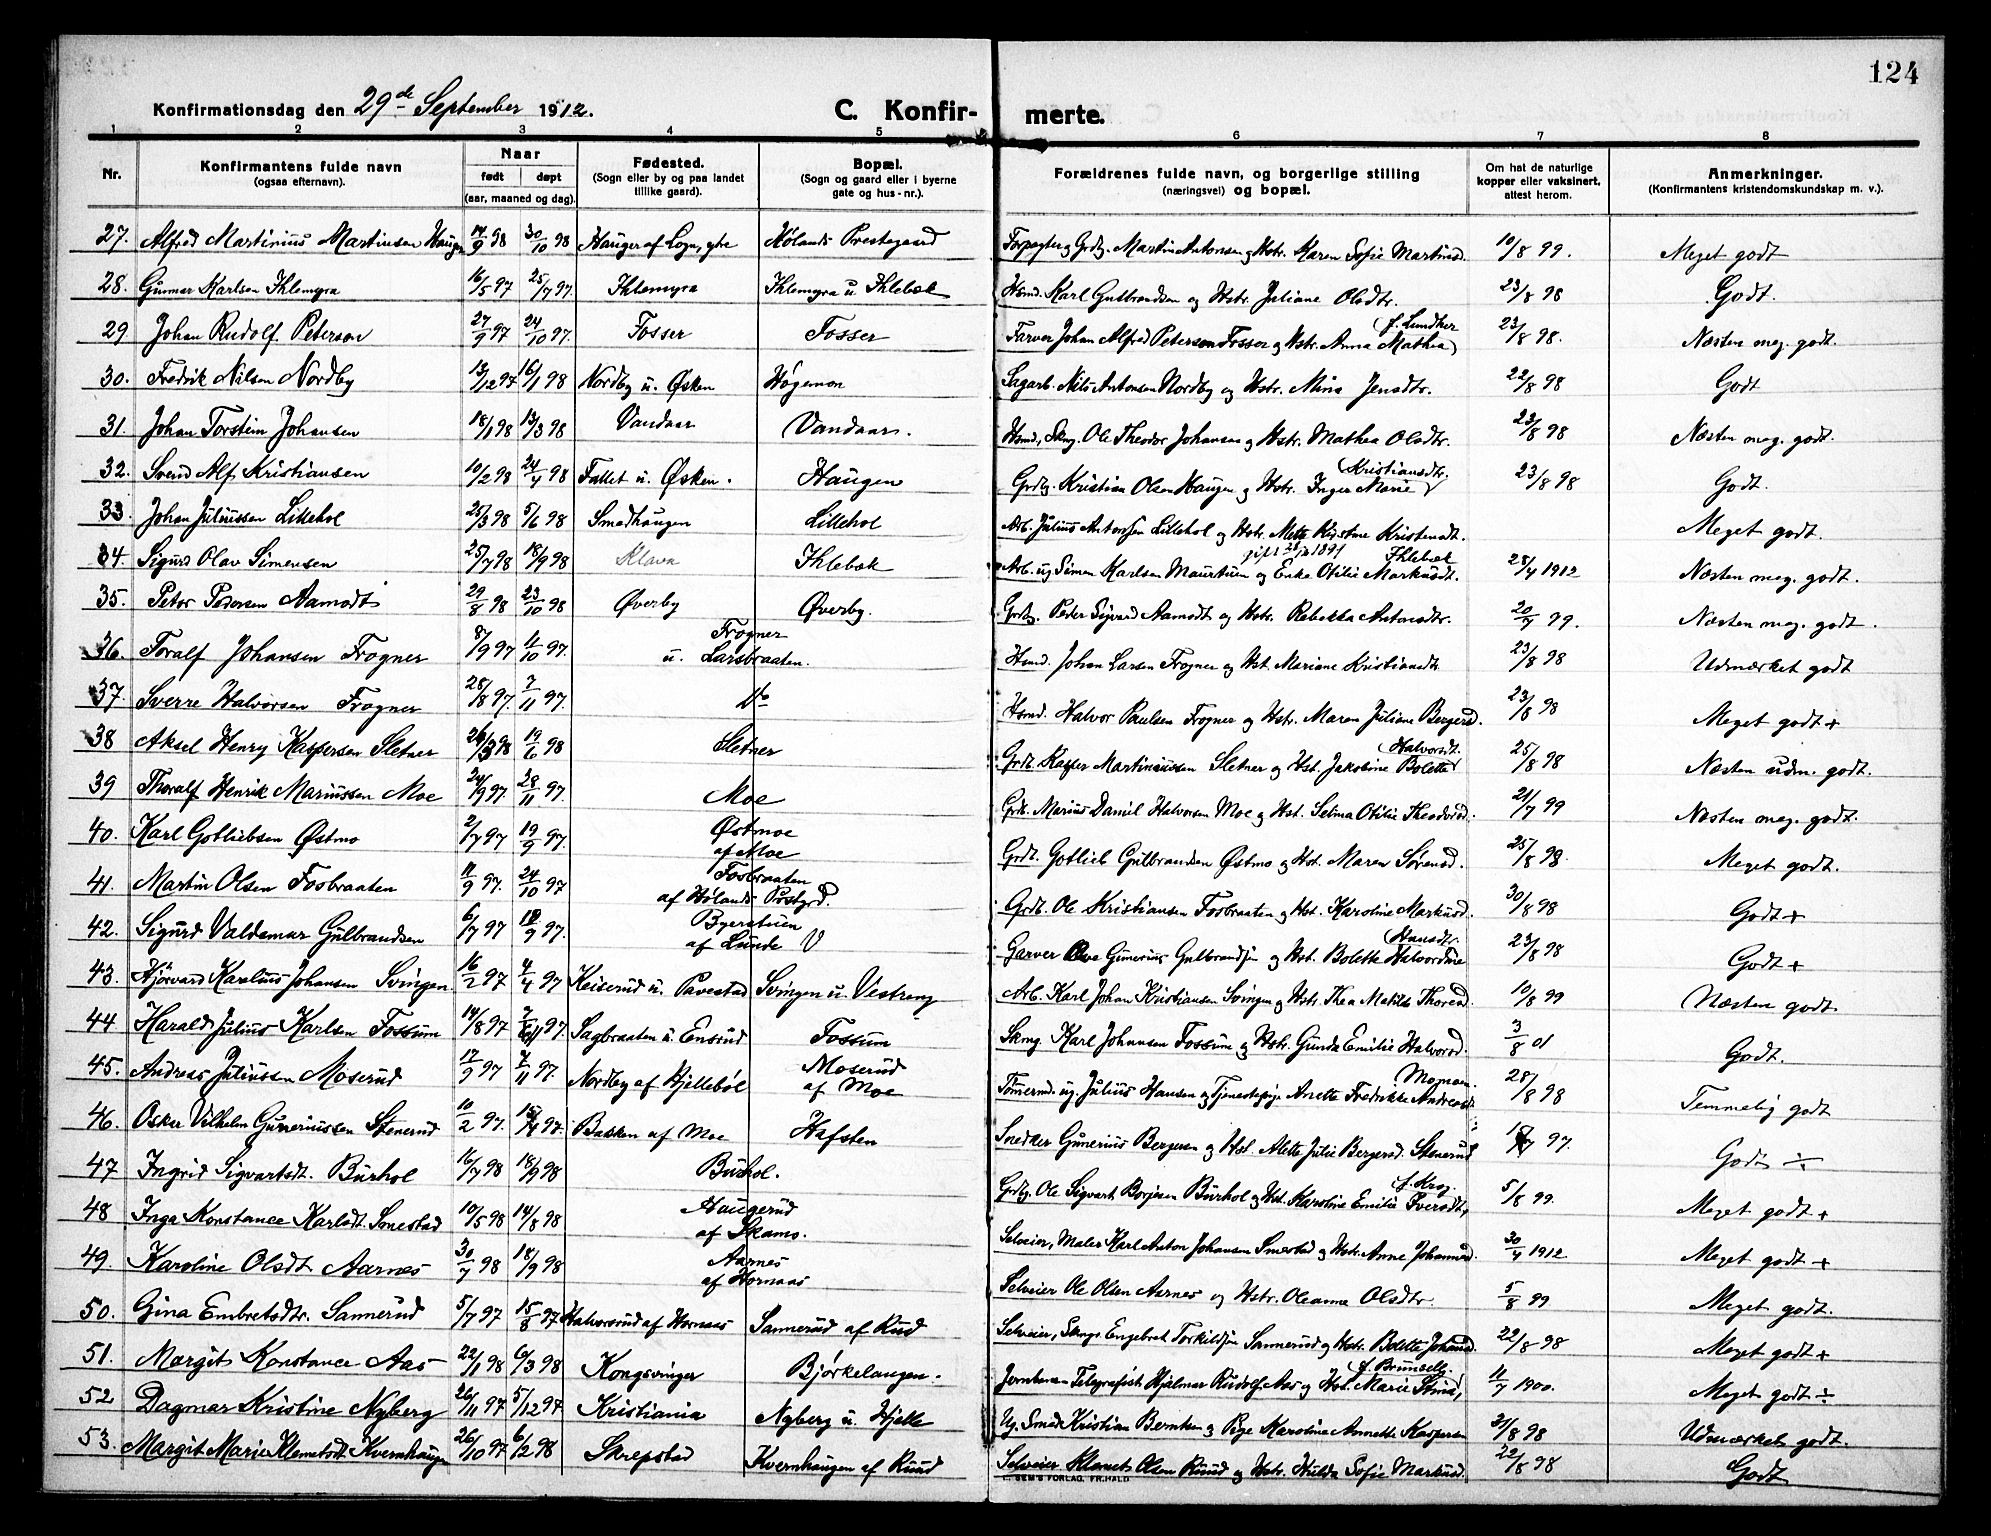 124
Konfirmationsdag den 29de September 1912. C. Konfir- merte.
1 2 3 4 5 6 7 8
Nr. Konfirmantens fulde navn (ogsaa efternavn). Naar født døpt (aar, maaned og dag). Fødested. (Sogn eller by og paa landet tillike gaard). Bopæl. (Sogn og gaard eller i byerne gate og hus-nr.). Forældrenes fulde navn, og borgerlige stilling (næringsvei) og bopæl. Om hat de naturlige kopper eller vaksinert, attest herom. Anmerkninger. (Konfirmantens kristendomskundskap m. v.).
27. Alfred Martinius Martinsen Hauger 14/9 98 30/10 98 Hauger af Logn, ytre Hølands Prestegaard Forpagter, Grdbr. Martin Antonsen og Hstr. Karen Sofie Martinsd. 10/8 99. Meget godt
28. Gunnar Karlsen Ihlemyra 16/5 97 25/7 97. Ihlemyra Ihlemyra u. Ihlebæk Hsmd. Karl Gulbrandsen og Hstr. Juliane Olsdtr. 23/8 98 Godt.
29 Johan Rudolf Peterson 27/9 97 24/10 97. Fosser Fosser Farver Johan Alfred Peterson Fosser og Hstr. Anna Mathea (f. Lundker 23/8 98. Næsten meg. godt.
30. Fredrik Nilsen Nordby 13/12 97 16/1 98 Nordby u. Øsken Høgemon Sagarb. Nils Antonsen Nordby og Hstr. Mina Jensdtr. 22/8 98 Godt
31. Johan Torstein Johansen 18/1 98 13/3 98 Vandaar Vandaar. Hsmd, Skmg. Ole Theodor Johansen og Hstr. Mathea Olsdtr. 23/8 98 Næsten meg. godt.
32. Svend Alf Kristiansen 10/2 98 24/4 98 Fallet u. Øsken. Haugen Grdbr. Kristian Olsen Haugen og Hstr. Inger Marie (Kristiansdtr. 23/8 98 Godt.
33. Johan Juliussen Lillehol 25/3 98 5/6 98 Smedhaugen Lillehol Arb. Julius Antonsen Lillehol og Hstr. Mette Kristine Kristensdt. Meget godt.
34. Sigurd Olav Simensen 25/7 98 18/9 98 Klava Ihlebæk Arb. ug. Simen Karlsen Maurtuen og Enke Otilie Markusdt. Ihlebæk 28/4 1912 Næsten meg. godt.
35. Peter Pedersen Aamodt 29/8 98 23/10 98 Øverby Øverby. Grdbr. Peder Sigvard Aamodt og Hstr. Rebekka Antonsdtr. 20/7 99. Næsten meg. godt.
36. Toralf Johansen Frogner 8/9 97 4/10 97. Frogner u. Larsbraaten. Hsmd. Johan Larsen Frogner og Hst. Mariane Kristiansdt 23/8 98 Udmærket godt
37. Sverre Halvorsen Frogner 28/8 97. 7/11 97. Do Hsmd. Halvor Paulsen Frogner og Hstr. Maren Juliane Bergersd. 23/8 98 Meget godt +
38 Aksel Henry Kaspersen Sletner 26/3 98 19/6 98 Sletner Grdb. Kasper Martiniussen Sletner og Hst. Jakobine Bolette (Halvorsdt. 25/8 98 Næsten udm. godt.
39 Thoralf Henrik Mariussen Moe 24/9 97. 28/11 97. Moe Grdb. Marius Daniel Halvorsen Moe og Hst. Selma Otilie Theodorsd. 21/7 99 Næsten meg. godt.
40. Karl Gotliebsen Østmo 2/7 97 19/9 97. Østmoe af Moe Grdb. Gotlieb Gulbrandsen Østmo og Hst. Maren Sørensd. 25/8 98. Meget godt.
41. Martin Olsen Fosbraaten 11/9 97. 24/10 97 Fosbraaten af Hølands Prstgrd. Grdb. Ole Kristiansen Fosbraaten og Hst. Karoline Markusd. 30/8 98 Godt +
42. Sigurd Valdemar Gulbrandsen 6/7 97 12/9 97. Byerstuen af Lunde V Garver Ole Gunerius Gulbrandsen og Hst. Bolette Halvordine (Hansdtr. 23/8 98 Godt +
43. Hjörvard Karelius Johansen Svingen 16/2 97 4/4 97 Keiserud u. Pavestad Svingen u. Vestreng Arb. Karl Johan Kristiansen Svingen og Hstr. Thea Matilde Thoresd. 10/8 99 Næsten godt
44 Harald Julius Karlsen Fossum 14/8 97 7/11 97. Sagbraaten u. Ensrud Fossum Skmg. Karl Johansen Fossum og Hstr. Gunda Emilie Halvorsd. 3/8 01 Godt.
45. Andreas Juliussen Moserud 17/9 97 7/11 97. Nordby af Hjellebøl Moserud af Moe Tömermd. ug. Julius Hansen og Tjenestepige Anette Fredrikke Andreasdt. Momoen. 28/8 98 Temmelig godt
46. Oskar Vilhelm Guneriussen Stenerud 10/2 97. 97. Bakken af Moe Hafsten Snedker Gunerius Bergersen og Hst. Mette Julie Bergersd. Stenerud 97. Godt ÷
47 Ingrid Sigvartsdt. Burhol 16/7 98 18/9 98 Burhol. Grdbr. Ole Sigvart Borgesen Burhol og Hst. Karoline Emilie Iversdt, f. Krog. 5/8 99. Meget godt +
48 Inga Konstance Karlsdt. Smestad 10/5 98 14/8 98 Haugerud af Skamo. Selveier, Maler Karl Anton Johansen Smestad og Hstr. Anne Johannesd. 30/4 1912 Meget godt +
49. Karoline Olsdt Aarnes 30/7 98 18/9 98 Aarnes af Hornaas Selveier Ole Olsen Aarnes og Hstr. Oleanne Olsdtr. 5/8 99 Meget godt.
50. Gina Embretsdtr. Sannerud 5/7 97 15/8 97 Halvorsrud af Hornaas Sannerud af Ruud Selveier, Skmgr. Engebret Torkildsen Sannerud og Hstr. Bolette Johansd. 22/8 98 Meget godt +
51. Margit Konstance Aas 22/1 98 6/3 98 Kongsvinger Bjørkelangen. Jernbane Telegrafist Hjalmar Rudolf Aas og Hst. Marie Stina, f. Brunsell. 11/7 1900. Meget godt ÷
52 Dagmar Kristine Nyberg 26/11 97 5/12 97 Kristiania Nyberg u. Hjelle Ug. Smed Kristian Berntsen og Pige Karoline Annette Kaspersen 31/8 98 Udmærket godt.
53. Margit Marie Klemetsdt. Kvernhaugen 26/10 97 6/2 98 Skrepstad Kvernhaugen af Ruud Selveier Klemet Olsen Ruud og Hstr. Hulda Sofie Markusd. 22/8 98 Godt
E. SEM'S FORLAG, FR.HALD